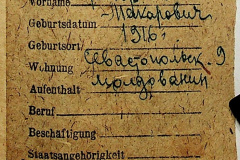 Vorname
Макарович
Geburtsdatum 1916
Geburtsort
Wohnung Севастопольск. 9
Aufenthalt молдованин
Beruf
Beschäftigung
Staatsangehörigkeit